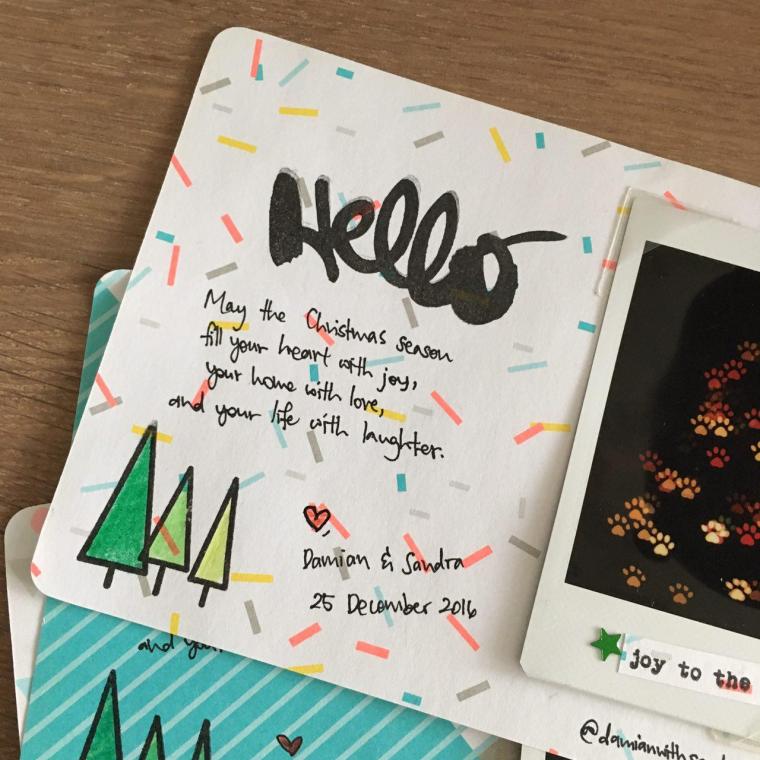 Hello
May the Christmas season
fill your heart with joy,
your home with love,
and your life with laughter.
Damian & Sandra
25 December 2016
joy to the
and your